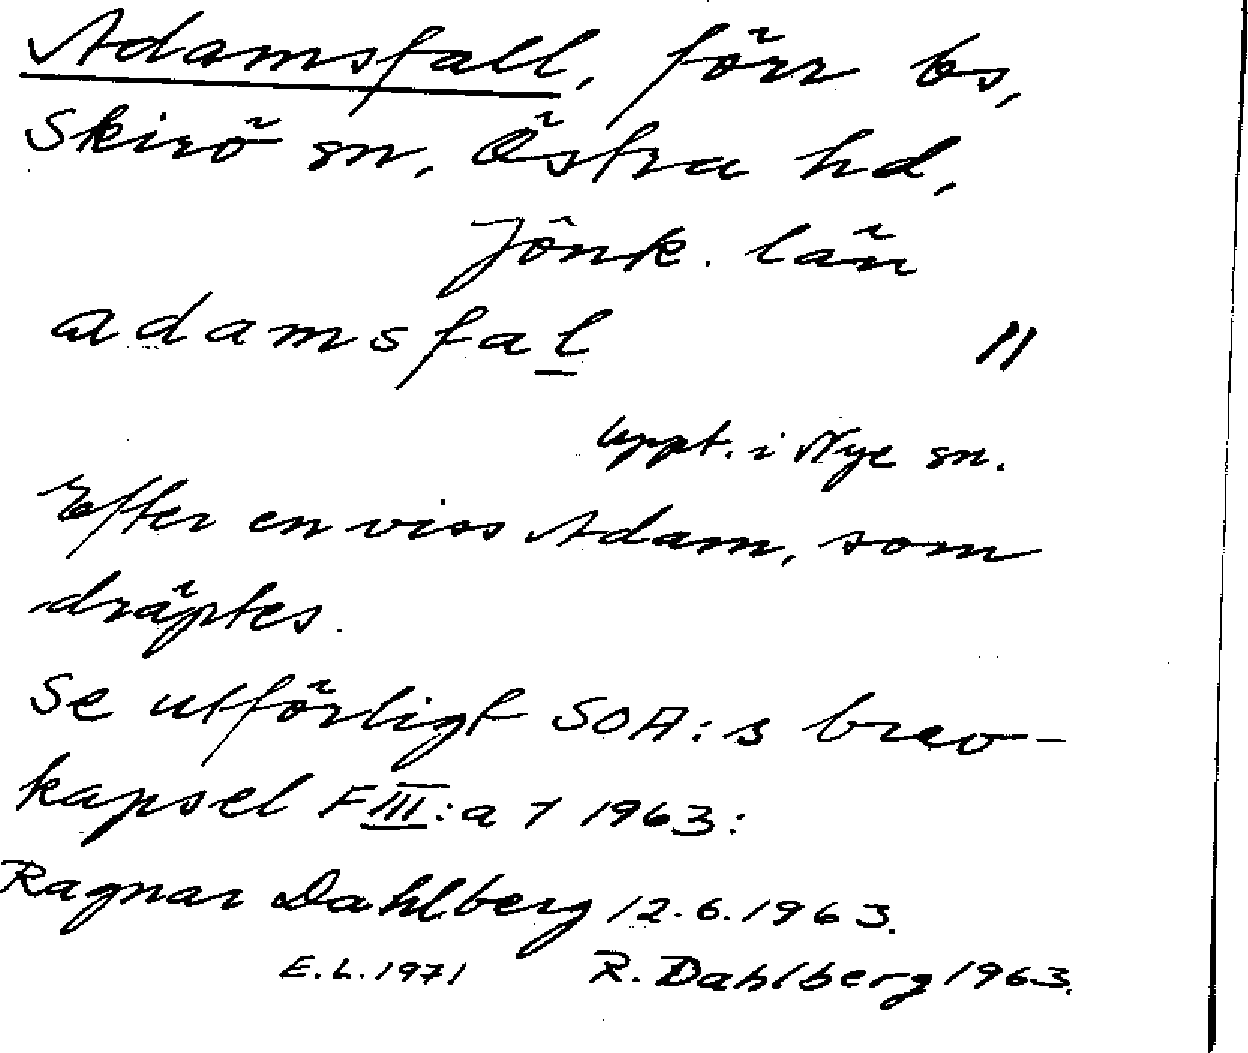 Adamsfall, förr bs,
Skirö sn, Östra hd,
Jönk. län
adamsfal "
uppt. i Nye sn.
Efter en viss Adam, som
dräptes.
Se utförligt SOA:s brev-
kapsel F III:a 7 1963:
Ragnar Dahlberg 12.6.1963.
E.L. 1971 R. Dahlberg 1963.